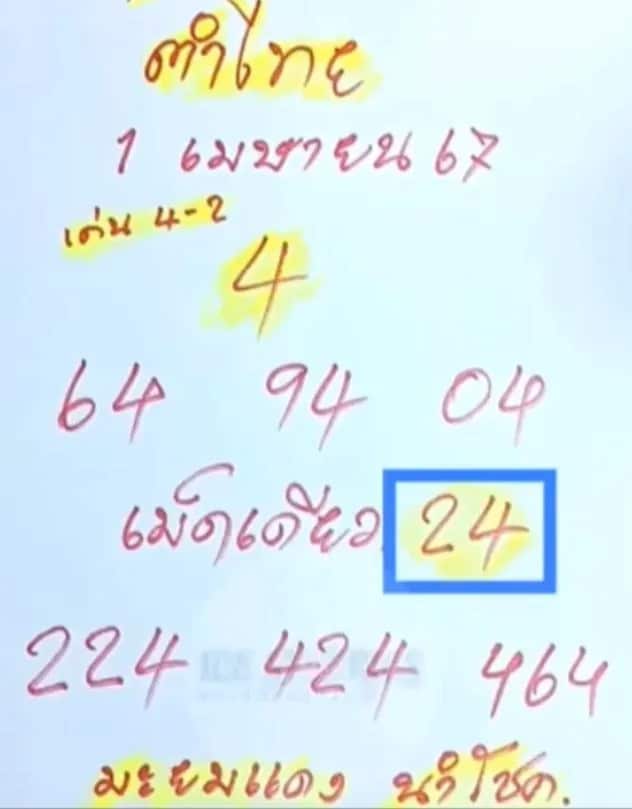 คำไทย
1 เมษายน 67
เด่น 4-2
4
64 94 04
เม็ดเดียว 24
224 424 464
มะยมแดง นำโชค.